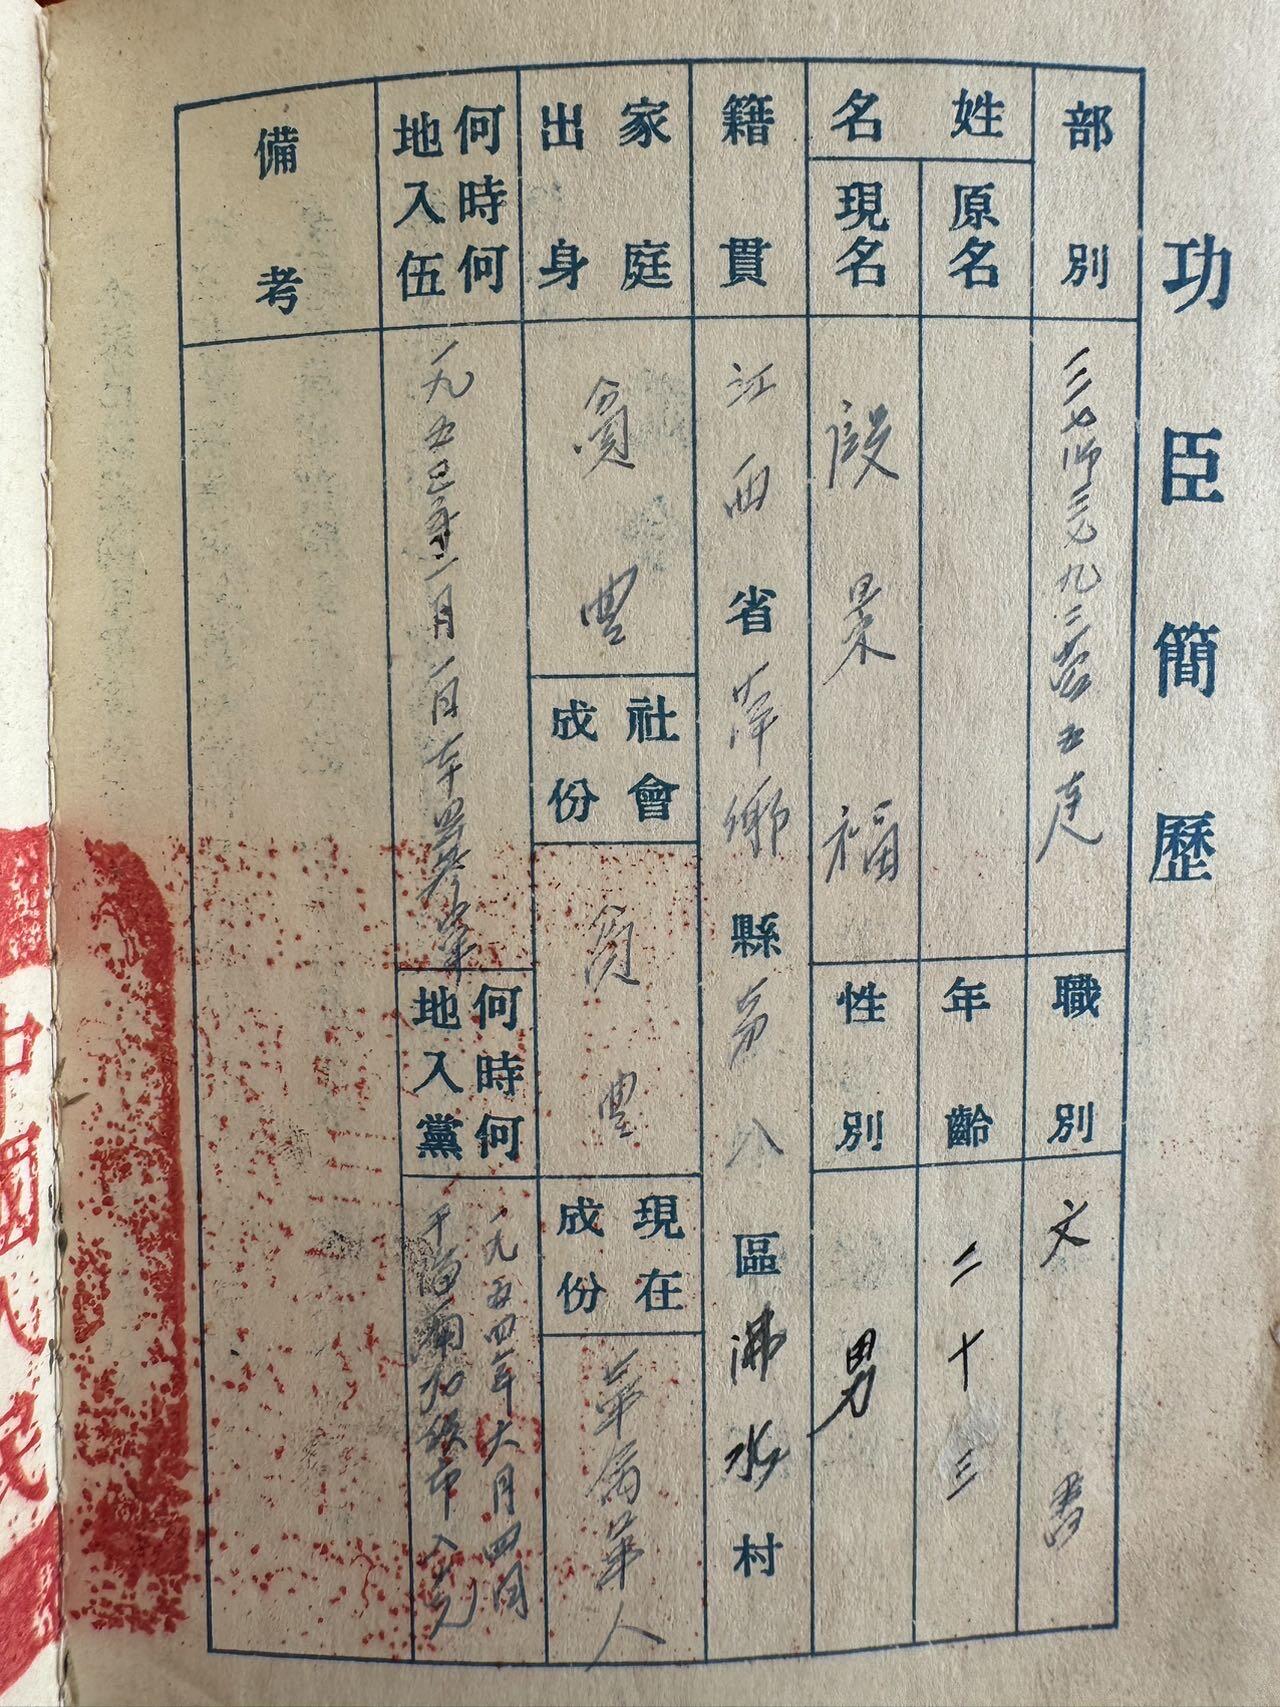 功臣簡歷
部別
三七師三九二营五连
職別
文書
姓名
原名
年齡
二十三
現名
段杲福
性別
男
籍貫
江西省萍鄉縣第八區沸水村
家庭出身
貧農
社會成份
貧農
現在成份
革命軍人
何時何地入伍
一九五
年
月
日
何時何地入黨
一九五四年六月四日
入党
備考
中國人民